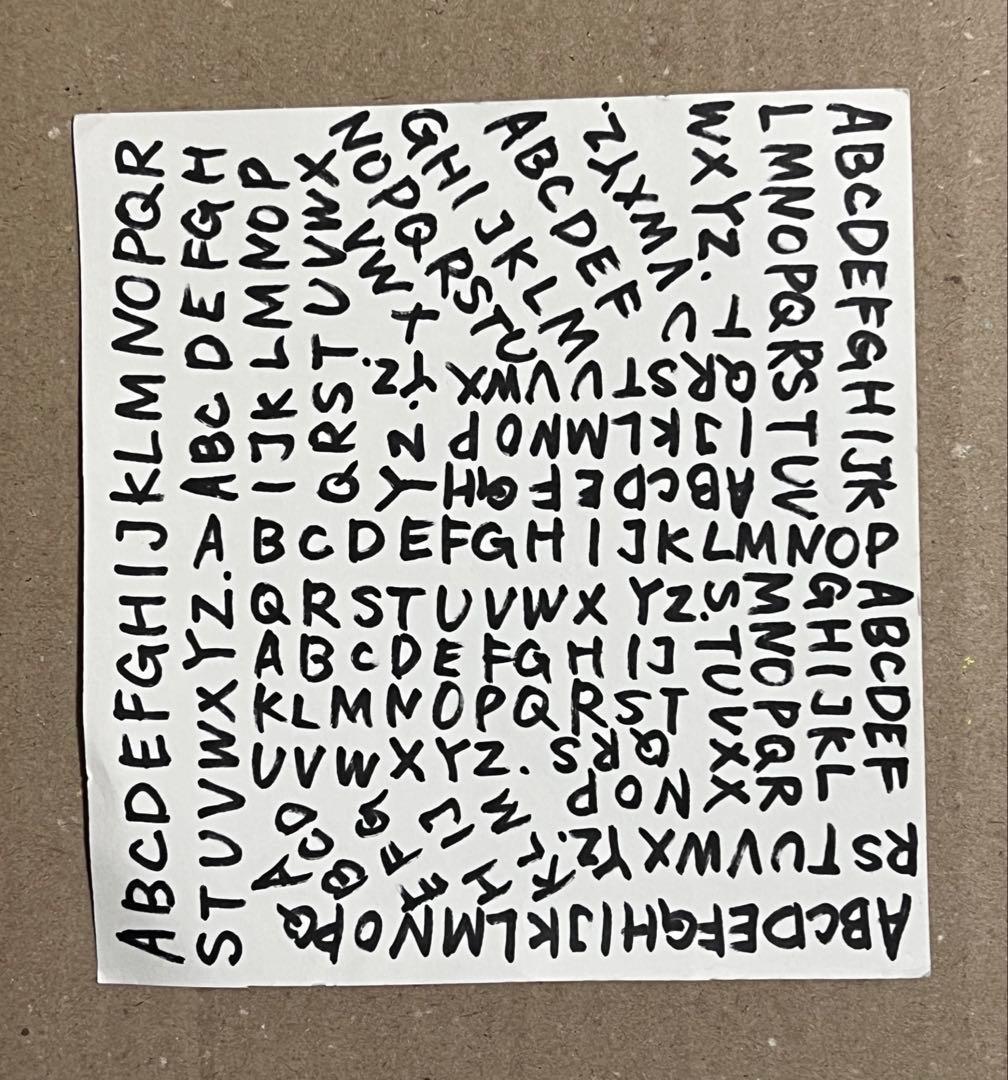 ABCDEFGHIJKLMNOPQR
STUVWXYZ.
ABC DEFGH
IJKLMNOP
QRSTUVWX
YZ.
ABCDEF
GHIJKLM
NOPQRSTU
VWXYZ.
ABCDEFGHIJK
LMNOPQRSTUV
WXYZ.
ABCDEFGH
IJKLMNOP
QRST
UVWXYZ.
UVWXYZ.
ABCDEFGHIJKLMNOP
QRSTUVWX YZ.
ABCDEFGHIJ
KLMNOPQRST
UVWXYZ.
ABCDEF
GHIJKL
MNOPQR
STUVXX
YZ.
ABCDEFGHIJKLMNOPQ
RSTUVWXYZ.
A
C D
Q
E F G
H I J
K L M
NOP
QRS